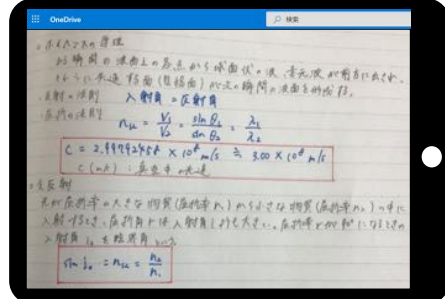 OneDrive
検索
ホイヘンスの原理
ある瞬間の波面上の各点から球面状の波、素元波が前方に出され、
に共通する面(包絡面)が次の瞬間の波面を形成する。
反射の法則 入射角 = 反射角
屈折の法則
n₁₂ = V₁/V₂ = sin θ₁/sin θ₂ = λ₁/λ₂
C = 2.99792458 × 10⁸ m/s ≒ 3.00 × 10⁸ m/s
C (m/s) : 真空中の光速
全反射
光が屈折率の大きな物質(屈折率 n₁)から小さな物質(屈折率 n₂)の中に
入射するとき、屈折角 r は入射角 i よりも大きい。屈折率 r が90°になるときの
入射角 i₀ を臨界角という
sin i₀ = n₁₂ = n₂/n₁